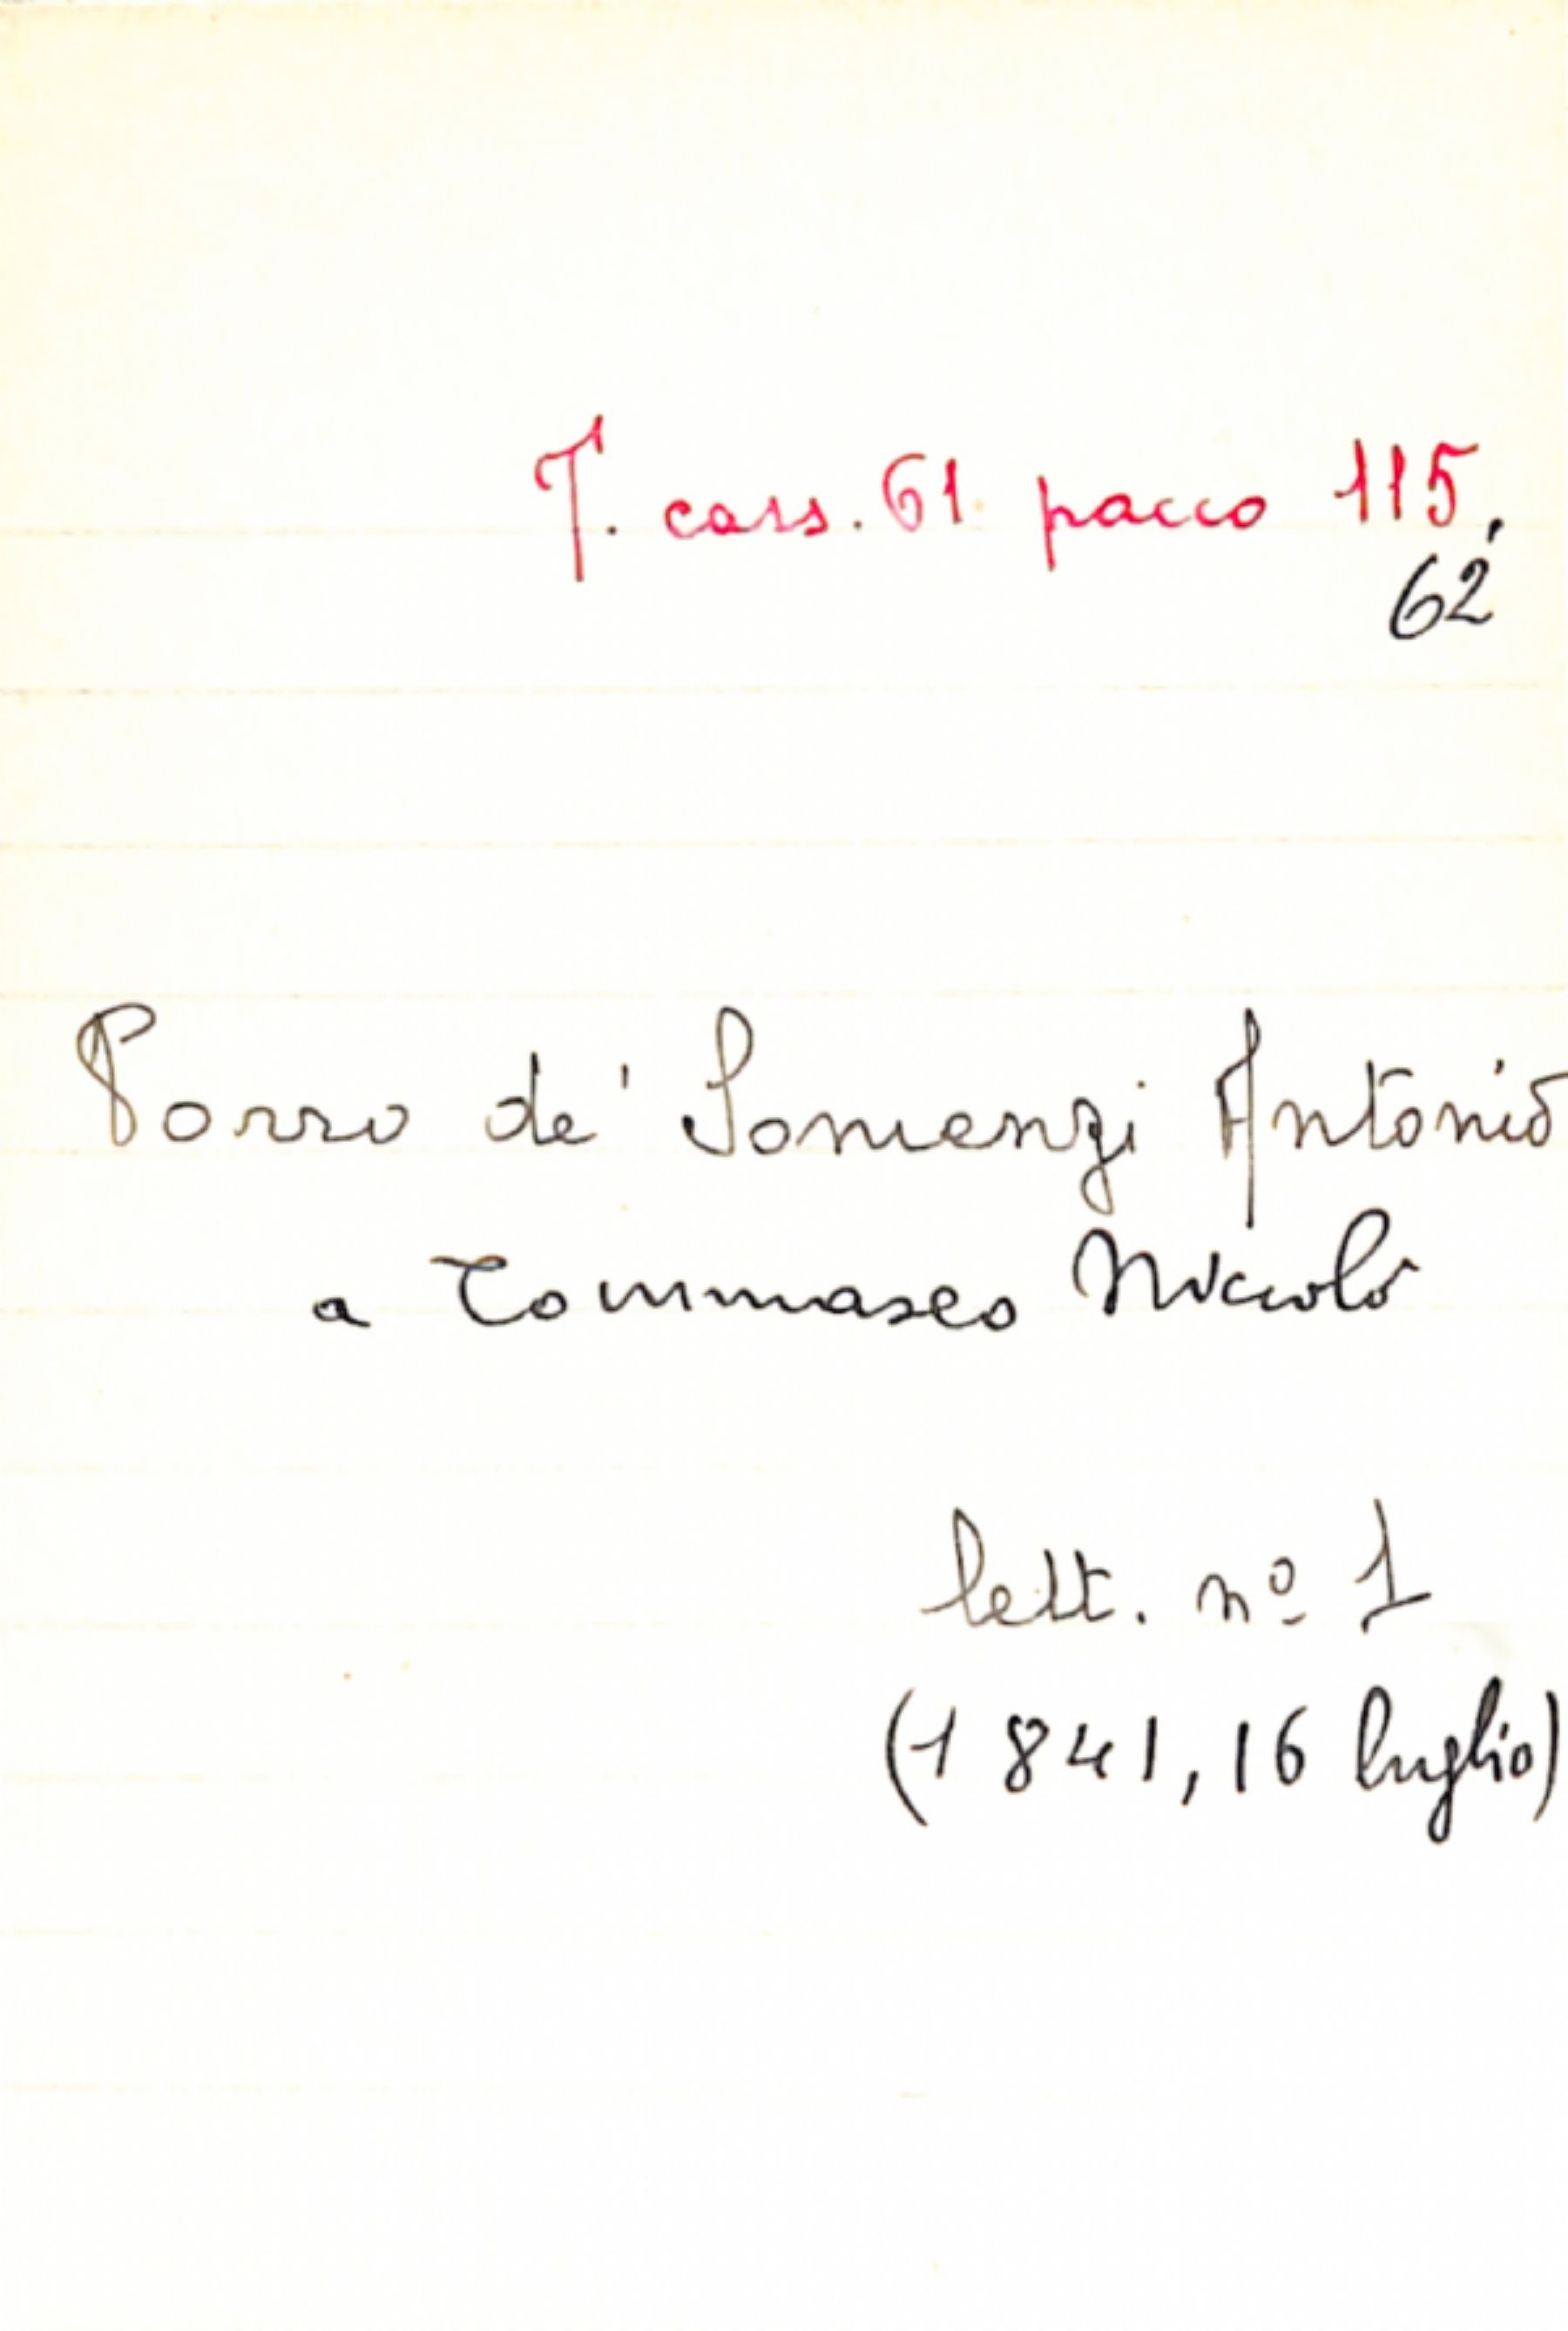 T. cass. 61. pacco 115,
62
Porro de' Somenzi Antonio
a Tommaseo Niccolò
lett. nº 1
(1841, 16 luglio)